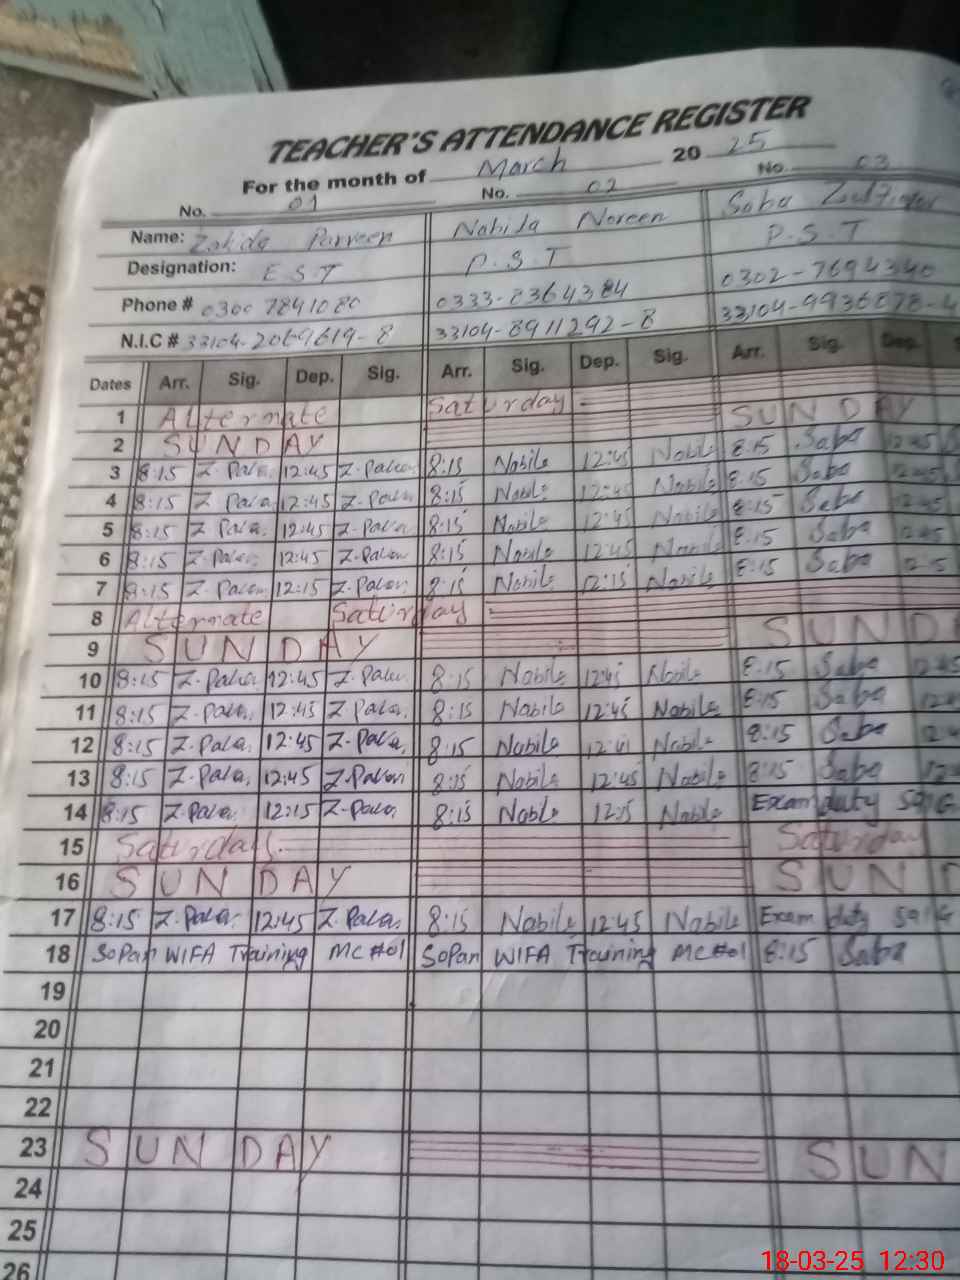 TEACHER'S ATTENDANCE REGISTER
For the month of March 2025
No. 01 No. 02 No. 03
Name: Zahida Parveen Nabila Noreen Saba
Designation: E.S.T P.S.T P.S.T
Phone # 0300 7841080 0333-8364384 0302-7694340
N.I.C # 33104-2069619-8 33104-8911292-8 33104-9936878-4
Dates Arr. Sig. Dep. Sig. Arr. Sig. Dep. Sig. Arr. Sig. Dep. S
1 Alternate Saturday - SUNDAY
2 SUNDAY 8:15 Saba 12:45
3 8:15 Z-Pala 12:45 Z-Palen 8:15 Nabila 12:45 Nabila 8:15 Saba 12:45
4 8:15 Z Pala 12:45 Z-Pala 8:15 Nabila 12:45 Nabila 8:15 Saba 12:45
5 8:15 Z Pala 12:45 Z-Pala 8:15 Nabila 12:45 Nabila 8:15 Saba 12:45
6 8:15 Z-Pala 12:45 Z-Palen 8:15 Nabila 12:45 Nabila 8:15 Saba
7 8:15 Z-Palen 12:15 Z-Palen 8:15 Nabila 12:15 Nabila
8 Alternate Saturday -
9 SUNDAY SUND
10 8:15 Z-Pala 12:45 Z-Palen 8:15 Nabila 12:45 Nabila 8:15 Saba 12:45
11 8:15 Z-Pala. 12:45 Z-Pala. 8:15 Nabila 12:45 Nabila 8:15 Saba 12:4
12 8:15 Z-Pala, 12:45 Z-Pala, 8:15 Nabila 12:4 Nabila 8:15 Saba 12:4
13 8:15 Z-Pala, 12:45 Z-Palen 8:15 Nabila 12:45 Nabila 8:15 Saba 12:
14 8:15 Z-Pala, 12:15 Z-Pala, 8:15 Nabla 12:15 Nabila Exam duty 591G
15 Saturday. Saturday
16 SUNDAY SUN
17 8:15 Z-Pala. 12:45 Z-Pala. 8:15 Nabila 12:45 Nabila Exam duty 591G
18 SoPan WIFA Training MC#01 SoPan WIFA Training MC#01 8:15 Saba
19
20
21
22
23 SUNDAY SUN
24
25
26
18-03-25 12:30